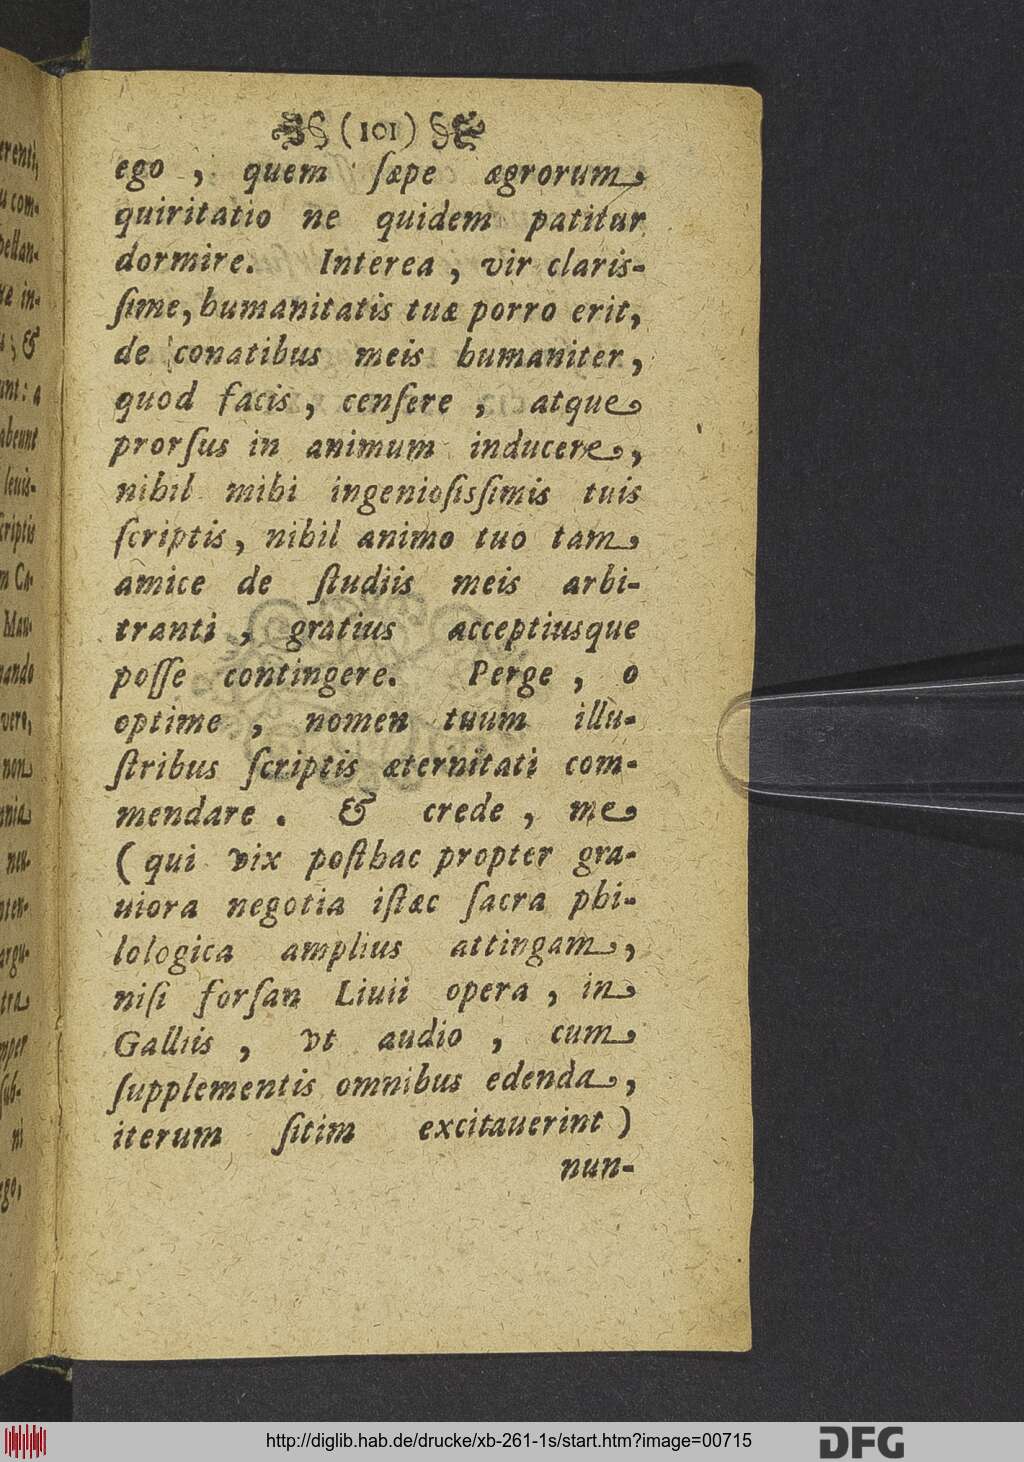 (101)
ego, quem ſæpe ægrorum
quiritatio ne quidem patitur
dormire. Interea, vir claris-
ſime, humanitatis tuæ porro erit,
de conatibus meis humaniter,
quod facis, cenſere, atque
prorſus in animum inducere,
nihil mihi ingenioſisſimis tuis
ſcriptis, nihil animo tuo tam
amice de ſtudiis meis arbi-
tranti, gratius acceptiusque
poſſe contingere. Perge, o
optime, nomen tuum illu-
ſtribus ſcriptis æternitati com-
mendare. & crede, me
(qui vix poſthac propter gra-
uiora negotia iſtæc ſacra phi-
lologica amplius attingam,
niſi forſan Liuii opera, in
Galliis, vt audio, cum
ſupplementis omnibus edenda,
iterum ſitim excitauerint)
nun-
http://diglib.hab.de/drucke/xb-261-1s/start.htm?image=00715
DFG